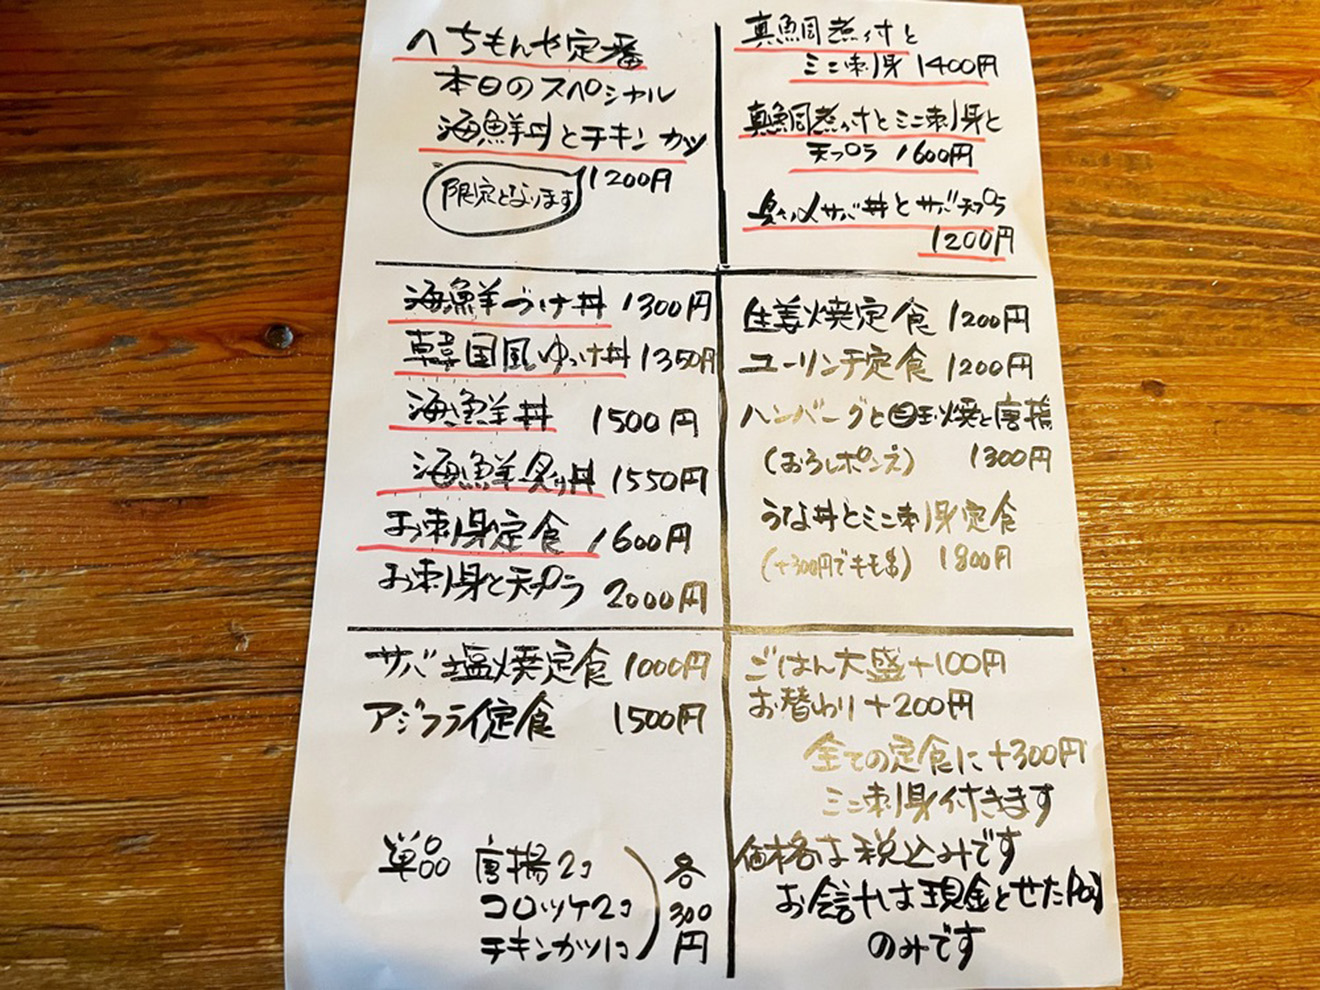 へちもんや定番
本日のスペシャル
海鮮丼とチキンカツ
1200円
限定となります
真鯛煮付と
ミニ刺身 1400円
真鯛煮付とミニ刺身と
天プラ 1600円
サバ丼とサバ天プラ
1200円
海鮮づけ丼 1300円
韓国風ゆっけ丼 1350円
海鮮丼 1500円
海鮮炙り丼 1550円
お刺身定食 1600円
お刺身と天プラ 2000円
生姜焼定食 1200円
ユーリンチ定食 1200円
ハンバーグと目玉焼と唐揚
(おろしポンズ) 1300円
うな丼とミニ刺身定食
(+300円でキモ串) 1800円
サバ塩焼定食 1000円
アジフライ定食 1500円
単品 唐揚2コ
コロッケ2コ
チキンカツ1コ
各
300
円
ごはん大盛+100円
お替わり+200円
全ての定食に+300円
ミニ刺身付きます
価格は税込みです
お会計は現金とせたPay
のみです